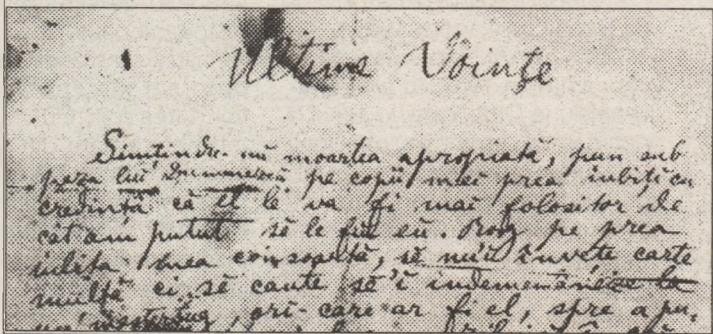 Ultime Voințe
Simțindu-mi moartea apropiată, pun sub
paza lui Dumnezeŭ pe copii mei prea iubiți cu
credință că el le va fi mai folositor de
cât am putut să le fiu eŭ. Rog pe prea
iubita mea consoartă, să nu'i învete carte
multă ci să caute să'i indemâneze la
un meșteșug, ori-care ar fi el, spre a pu.